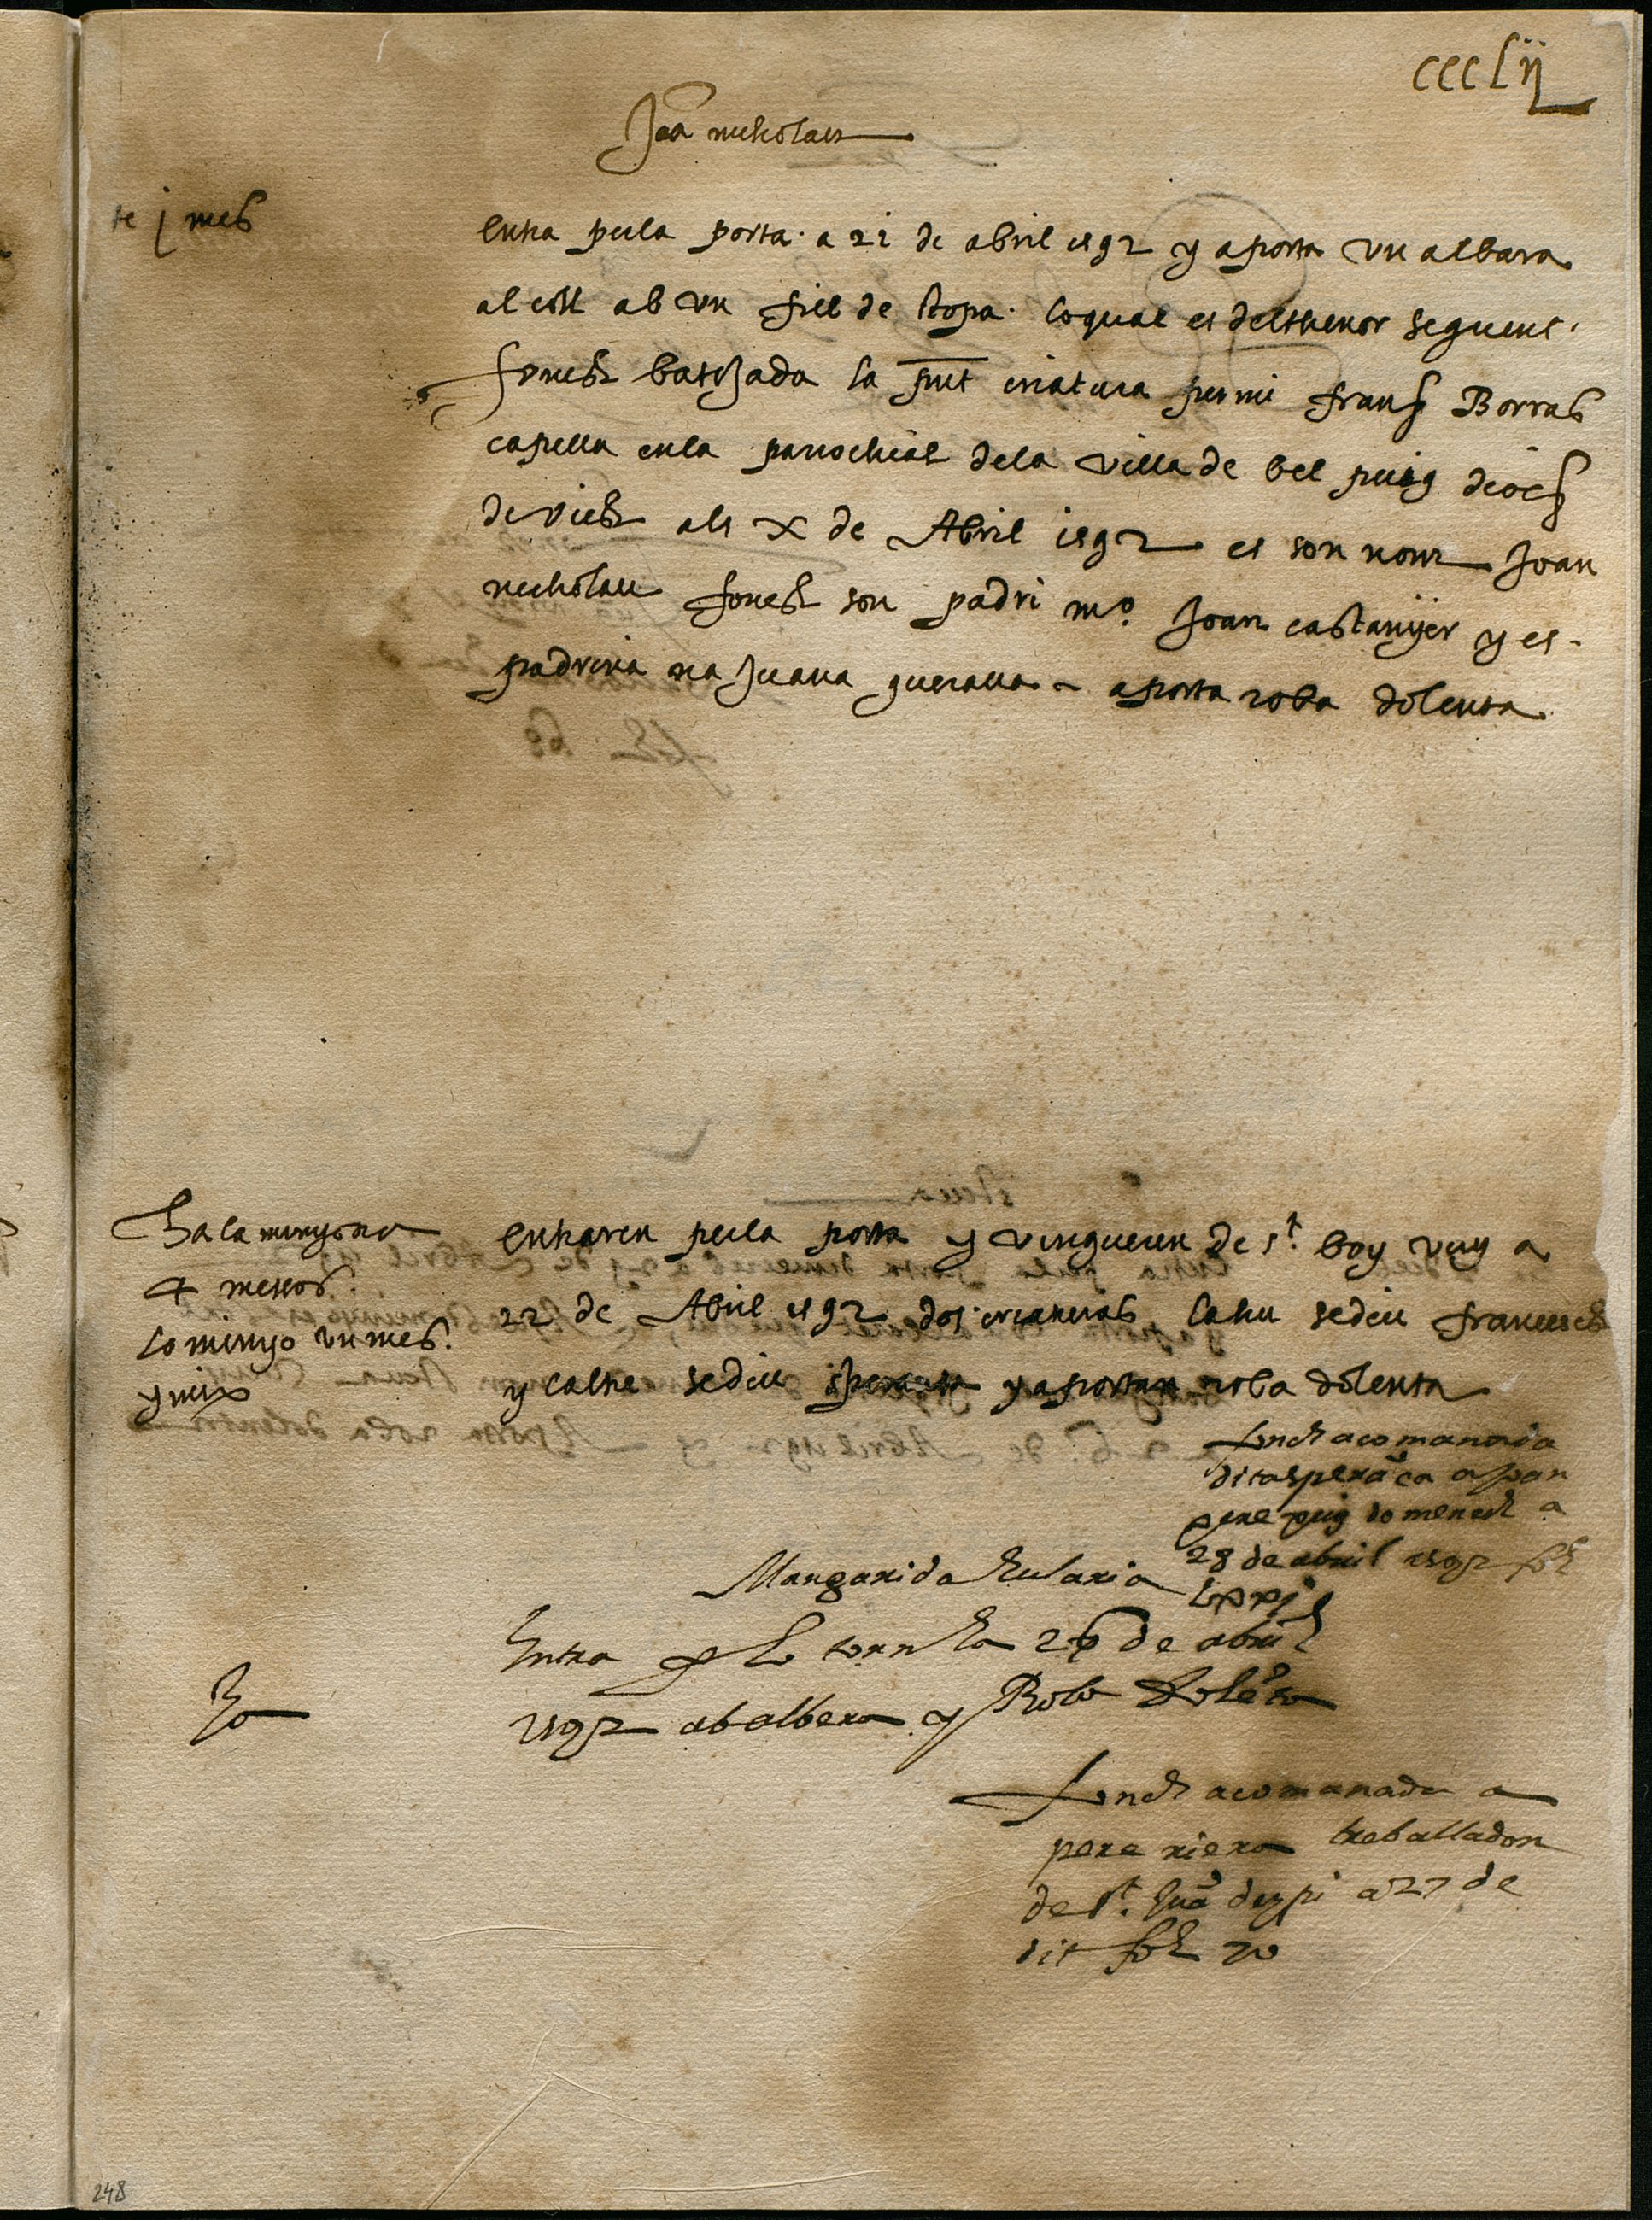 ccclij
Joā nicholau
te j mes
entra per la porta a 21 de abril 1592 y aporta un albara
al coll ab un fil de stopa lo qual es del thenor seguent
fonch batejada la pnt criatura per mi frances Borras
capella en la parrochial de la villa de bel puig dioces
de vich als X de Abril 1592 es son nom Joan
nicholau fonch son padri m.º Joan castanyer y es
padrina na Juana gueraua aporta roba dolenta
Ha la minyona
4 mesos
lo minyo un mes
y mix
entraren per la porta y vingueren de s.t boy vuy a
22 de Abril 1592 dos criaturas la hu se diu francesch
y laltre se diu speransa y aportan roba dolenta
fonch acomanada
dita sperāça a Joan
pere puig domenech a
28 de abril 1592 fol
lxxj
Margarida Eularia
Entra p lo torn ha 26 de abril
1592 ab albera y Roba dolēta
Jo
fonch acomanada a
pere riera treballador
de s.t Juā despi a 27 de
dit fol 70
248